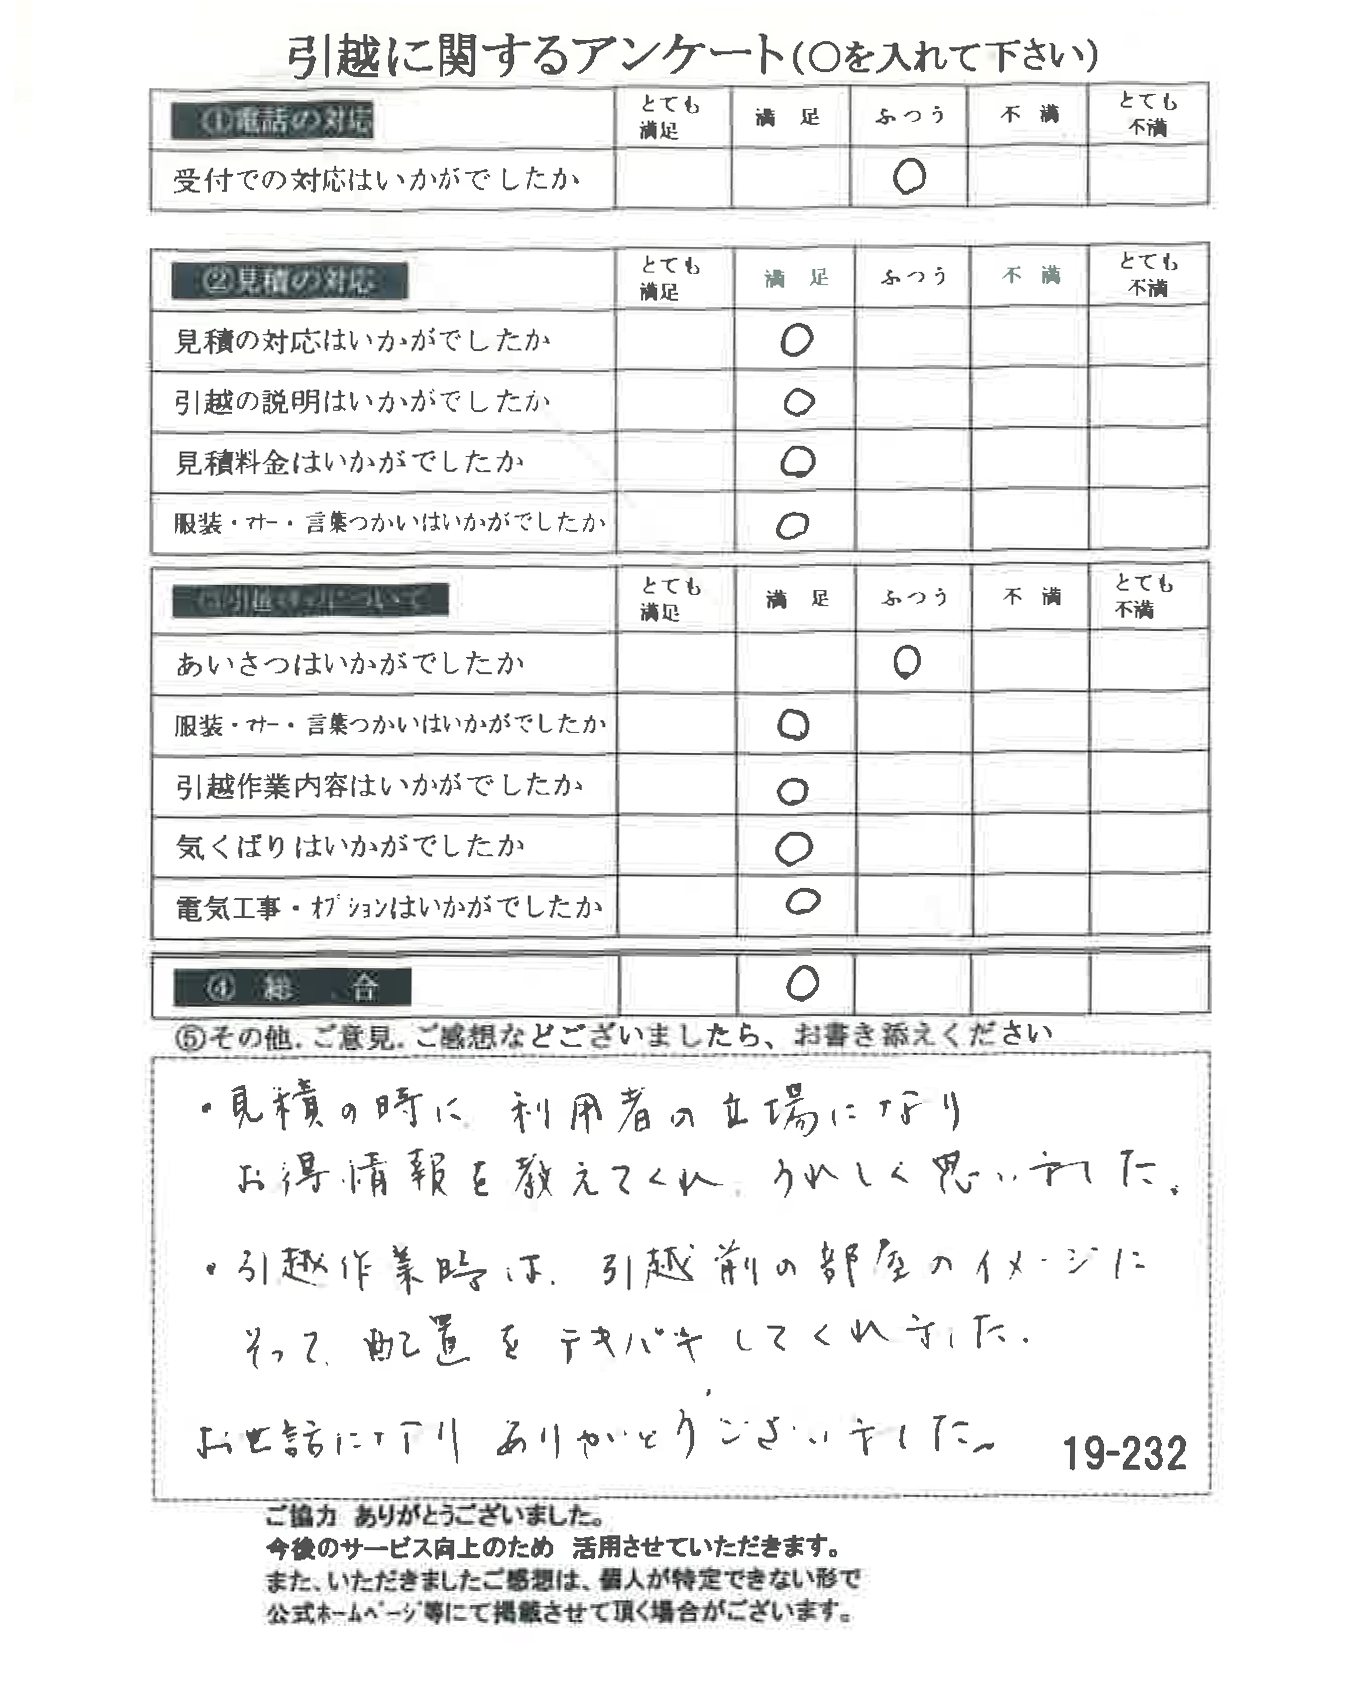 引越に関するアンケート(○を入れて下さい)
①電話の対応 とても満足 満足 ふつう 不満 とても不満
受付での対応はいかがでしたか ○
②見積の対応 とても満足 満足 ふつう 不満 とても不満
見積の対応はいかがでしたか ○
引越の説明はいかがでしたか ○
見積料金はいかがでしたか ○
服装・マナー・言葉つかいはいかがでしたか ○
とても満足 満足 ふつう 不満 とても不満
あいさつはいかがでしたか ○
服装・マナー・言葉つかいはいかがでしたか ○
引越作業内容はいかがでしたか ○
気くばりはいかがでしたか ○
電気工事・オプションはいかがでしたか ○
④ 総合 ○
⑤その他.ご意見.ご感想などございましたら、お書き添えください
・見積の時に 利用者の立場になり
お得情報を教えてくれ、うれしく思いました。
・引越作業時は、引越前の部屋のイメージに
そって、配置をテキパキしてくれました。
お世話になり ありがとうございました。
19-232
ご協力 ありがとうございました。
今後のサービス向上のため 活用させていただきます。
また、いただきましたご感想は、個人が特定できない形で
公式ホームページ等にて掲載させて頂く場合がございます。